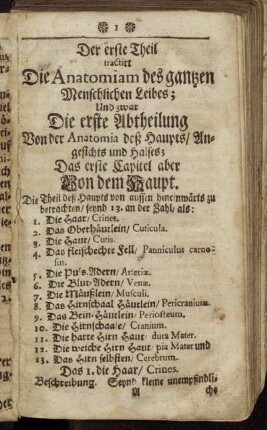 ❁ 1 ❁
Der erste Theil
tractirt
Die Anatomiam des gantzen
Menschlichen Leibes;
Und zwar
Die erste Abtheilung
Von der Anatomia deß Haupts/ An-
gesichts und Halses;
Das erste Capitel aber
Von dem Haupt.
Die Theil deß Haupts von aussen hineinwärts zu
betrachten/ seynd 13. an der Zahl/ als:
1. Die Haar/ Crines.
2. Das Oberhäutlein/ Cuticula.
3. Die Haut/ Cutis.
4. Das fleischechte Fell/ Panniculus carno-
sus.
5. Die Puls-Adern/ Arteriæ.
6. Die Blut-Adern/ Venæ.
7. Die Mäußlein/ Musculi.
8. Das Hirnschaal Häutlein/ Pericranium.
9. Das Bein-Häutlein/ Periosteum.
10. Die Hirnschaale/ Cranium.
11. Die harte Hirn Haut/ dura Mater.
12. Die weiche Hirn Haut/ pia Mater und
13. Das Hirn selbsten/ Cerebrum.
Das 1. die Haar/ Crines.
Beschreibung. Seynd kleine unempfindli-
A che